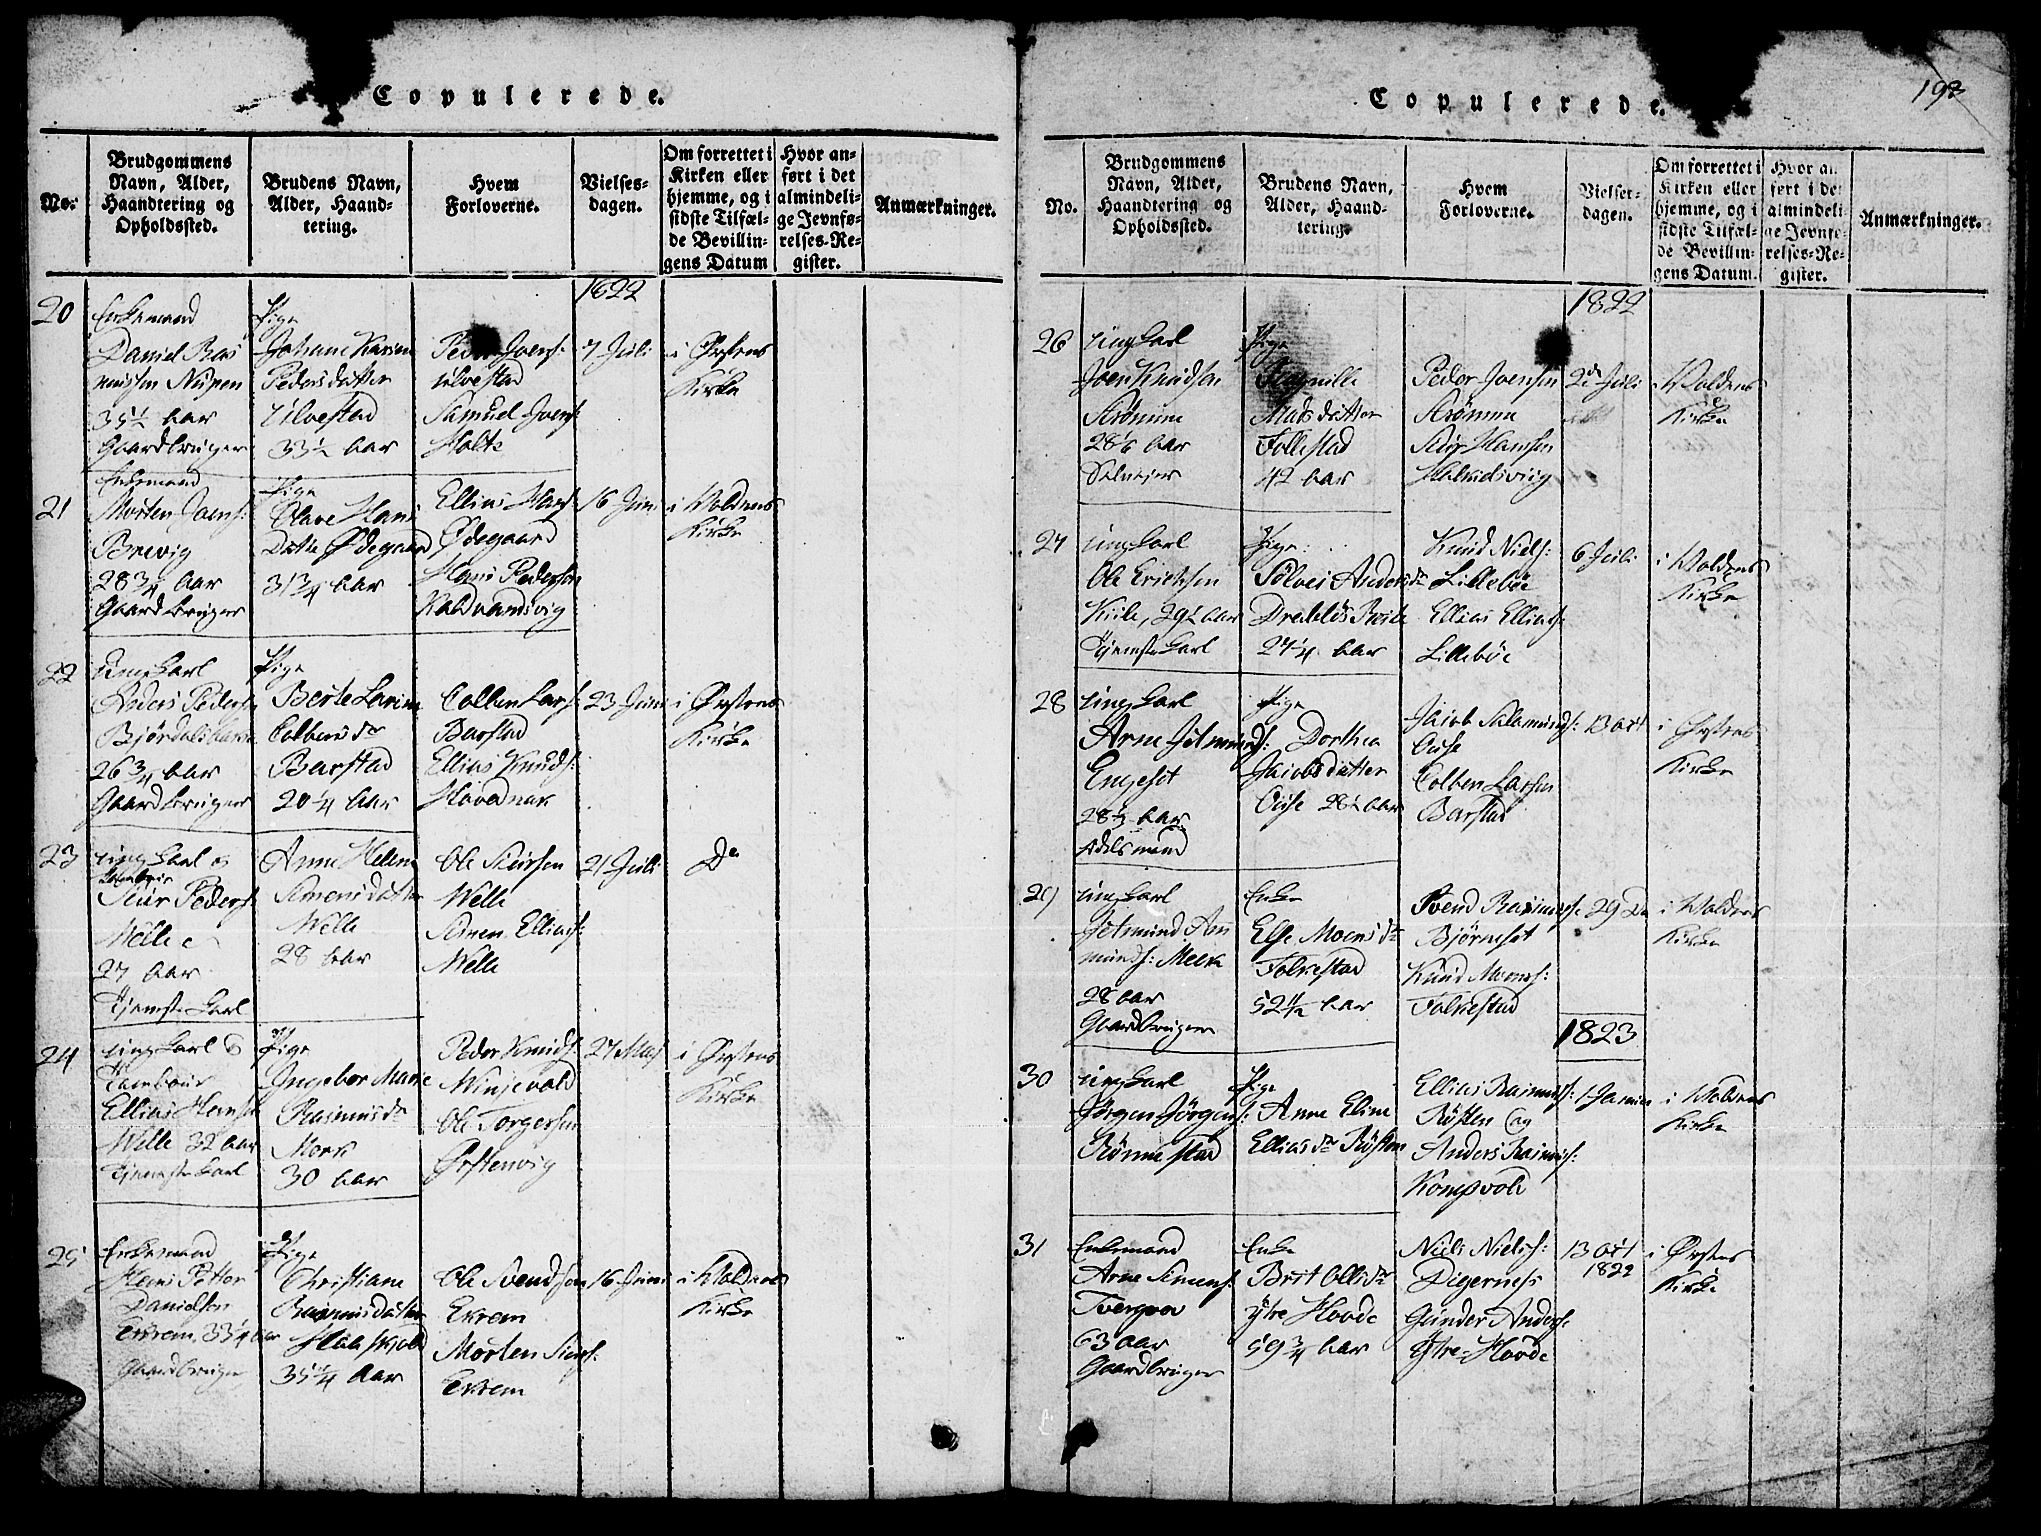 Copulerede.
No:
Brudgommens
Navn, Alder,
Haandtering og
Opholdssted.
Brudens Navn,
Alder, Haand-
tering.
Hvem
Forloverne.
Vielses-
dagen.
Om forrettet i
Kirken eller
hjemme, og i
sidste Tilfæl-
de Bevillin-
gens Datum
Hvor an-
ført i det
almindeli-
ge Jevnfø-
relses-Re-
gister.
Anmærkninger.
1822
20
Enkemand
Daniel Ras
mussen Nupen
35½ aar
Gaardbruger
Pige
Johane Karine
Pedersdatter
Ulvestad
33½ aar
Peder Joens:
Ulvestad
Samuel Joens:
Holte
7 Juli
i Ørstens
Kirke
21
Enkemand
Morten Joens:
Brevig
28¾ aar
Gaardbruger
Pige
Olave Hans
Datter Ødegaard
31¾ aar
Ellias Hans:
Ødegaard
Hans Pedersen
Kaldvandsvig
16 Juni
i Woldens
Kirke
22
ung Karl
Anders Peders
26¾ aar
Gaardbruger
Pige
Berte Larine
Colbens dr
Barstad
20¼ aar
Colben Lars:
Barstad
Ellias Knuds:
Hovednak
23 Juni
i Ørstens
Kirke
23
ung Karl og
Siur Peders:
Welle
27 aar
Tjeneste Karl
Anne Helene
Simensdatter
Welle
28 aar
Ole Siursen
Welle
Simen Ellias:
Welle
21 Juli
Do
24
ung Karl &
Tambour
Ellias Hansen
Welle 32 aar
Tjeneste Karl
Pige
Ingebor Marie
Rasmus dr
Mork
30 aar
Peder Knuds:
Winjevold
Ole Torgersen
Ørstenvig
27 Maj
i Ørstens
Kirke
25
Enkemand
Hans Petter
Danielsen
Ekrem, 33¼ aar
Gaardbruger
Pige
Christiane
Rasmusdatter
35¼ aar
Ole Svendsen
Ekrem
Morten Siurs:
Ekrem
16 Juni
i Woldens
Kirke
Copulerede.
193
No.
Brudgommens
Navn, Alder,
Haandtering og
Opholdssted.
Brudens Navn,
Alder, Haand-
tering.
Hvem
Forloverne.
Vielses-
dagen.
Om forrettet i
Kirken eller
hjemme, og i
sidste Tilfæl-
de Bevillin-
gens Datum.
Hvor an-
ført i det
almindeli-
ge Jevnfø-
relses-Re-
gister.
Anmærkninger.
1822
26
ung Karl
Joen Knudsen
Strømme
28⅙ aar
Selveier
Pige
Mads datter
Follestad
42 aar
Peder Joensen
Strømme
Siur Hansen
Juli
i Woldens
Kirke
27
ung Karl
Ole Erichsen
Kiile, 29½ aar
Tjeneste Karl
Pige
Solvei Anders dr
27¼ aar
Knud Niels:
Lillebøe
Ellias Ellias:
Lillebøe
6 Juli
i Woldens
Kirke
28
ung Karl
Arne Jetmunds:
Engeset
28½ aar
Pige
Dorthea
Jacobsdatter
Ouse 28½ aar
Jacob Salamunds:
Ouse
Colben Larsen
Barstad
13 Oct
i Ørstens
Kirke
29
ung Karl
Jetmund Am
munds: Meek
28 aar
Gaardbruger
Enke
Else Moens dr
Folkestad
52½ aar
Svend Rasmuss:
Bjørneset
Knud Moens:
Folkestad
29 De
i Woldens
Kirke
1823
30
ung Karl
Jørgen Jørgens:
Rønnestad
Pige
Anne Eline
Ellias dr Røsten
Ellias Rasmus:
Røsten og
Anders Rasmus:
Kompvold
1 Januar
i Woldens
Kirke
31
Enkemand
Arne Simens:
63 aar
Gaardbruger
Enke
Brit Olls dr
ytre Hovde
59¾ aar
Niels Niels:
Digernes
Gunder Anders:
Ytre-Hovde
13 Oct
1822
i Ørstens
Kirke